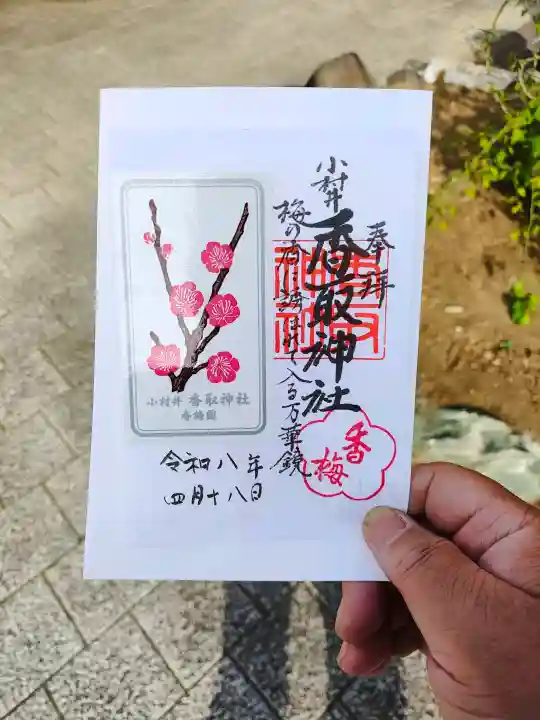 奉拝
小村井
香取神社
梅の香に誘はれて入る万華鏡
香梅
小村井 香取神社
香梅園
令和八年
四月十八日